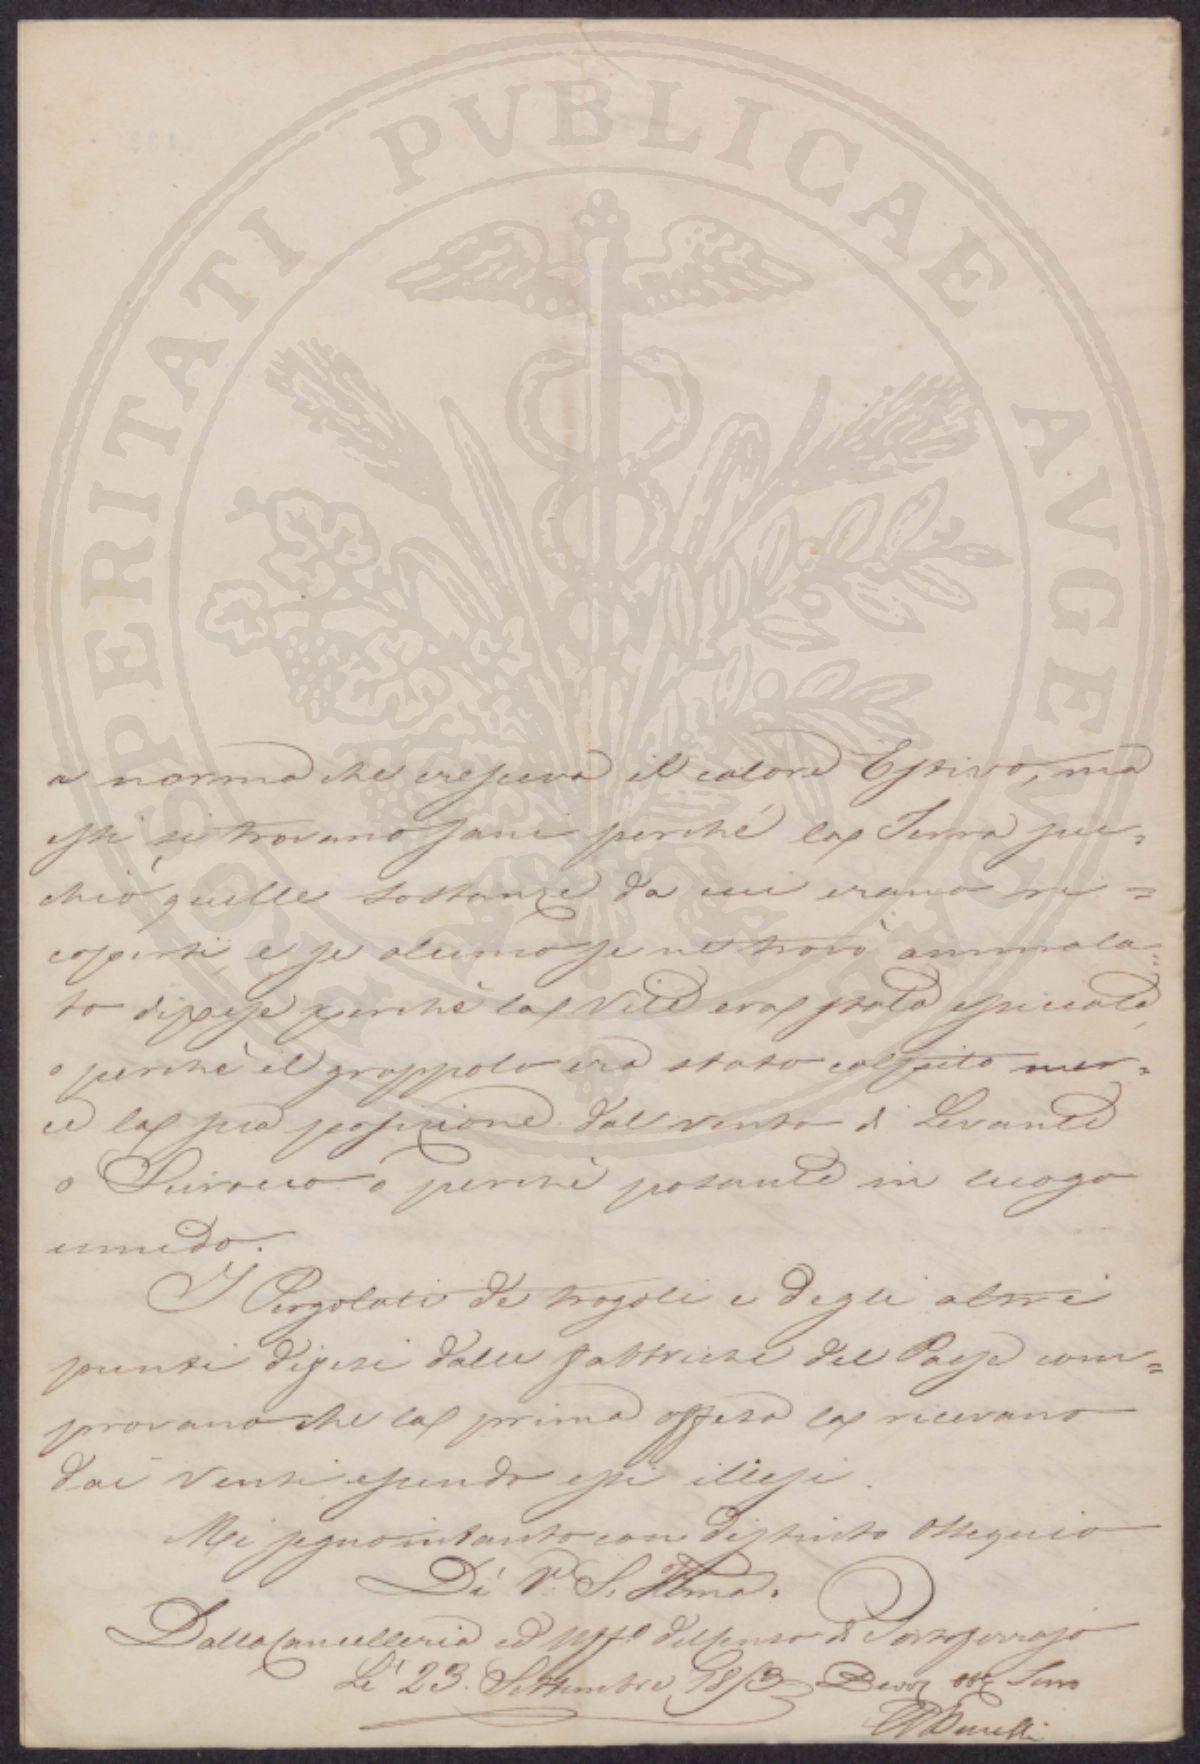 PROSPERITATI PVBLICAE AVGENDAE
a norma che cresceva il calore Estivo, ma
essi si trovano sani perché la Terra suc=
chiò quelle sostanze da cui erano ri=
coperti, e se alcuno se ne trovò ammala=
to dipese perchè la Vite era stata
o perchè il grappolo era stato colpito mer=
cè la sua posizione dal vento di Levante
o Scirocco o perchè posante in luogo
umido.
I Pergolati de e degli altri
punti difesi dalle fabbriche del Paese com=
provano che la prima offesa la ricevano
dai Venti essendo essi illesi.
Mi segno intanto con distinto Ossequio
Di V. S. Illma.
Dalla Cancelleria ed del Censo di Portoferrajo
Li 23. Settembre 1853